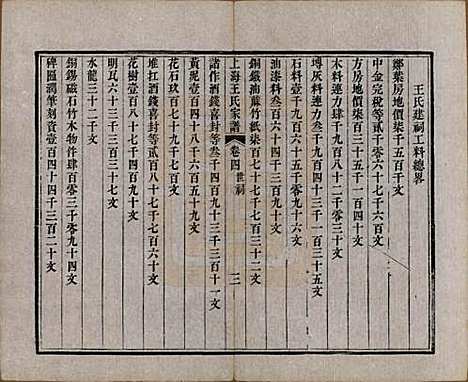 王氏建祠工料總畧
鄭葉房地價柒千五百千文
中金完稅等貳千零六十七千六百文
方房地價壹百三十五千一百四十文
木料連力肆千九百十二千零三十文
塼灰料連力叁千四百三千一百三十五文
石料壹千九百十四千七百六十文
油漆料叁百六十四千三百二十文
銅鐵油蔴竹紙柒百七十七千七百三十二文
上海王氏家譜 卷四 世祠 三
諸作酒錢喜封等叁千四百九十千三百十一文
黃泥壹百四十八千六百五十九文
花石玖百七十九千五百五十九文
堆扛酒錢喜封等貳百八十七千七百六十文
花樹壹百八十七千七百九十文
明瓦六十三千三百三十七文
水龍三十二千文
錫錫磁石竹木物件肆百零三千九十四文
碑匾潤筆刻資壹百四十四千三百二十文